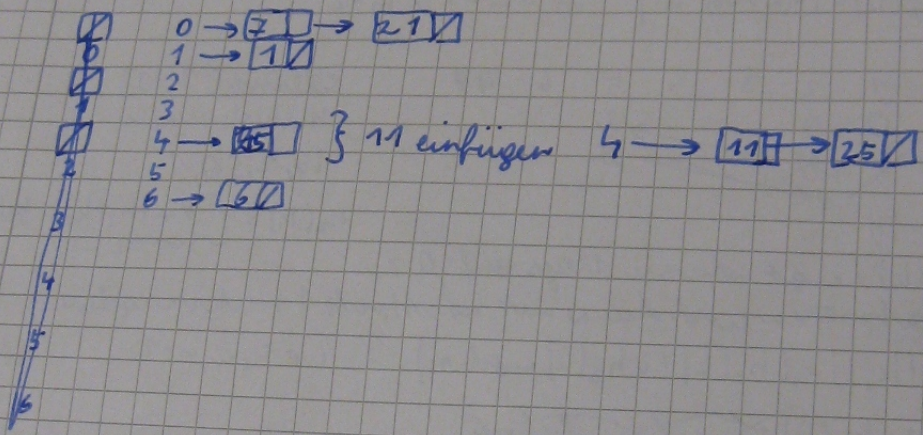 0 → 7 → 21
1 → 1
2
3
4 → 25 } 11 einfügen 4 → 11 → 25
5
6 → 6
0
1
2
3
4
5
6